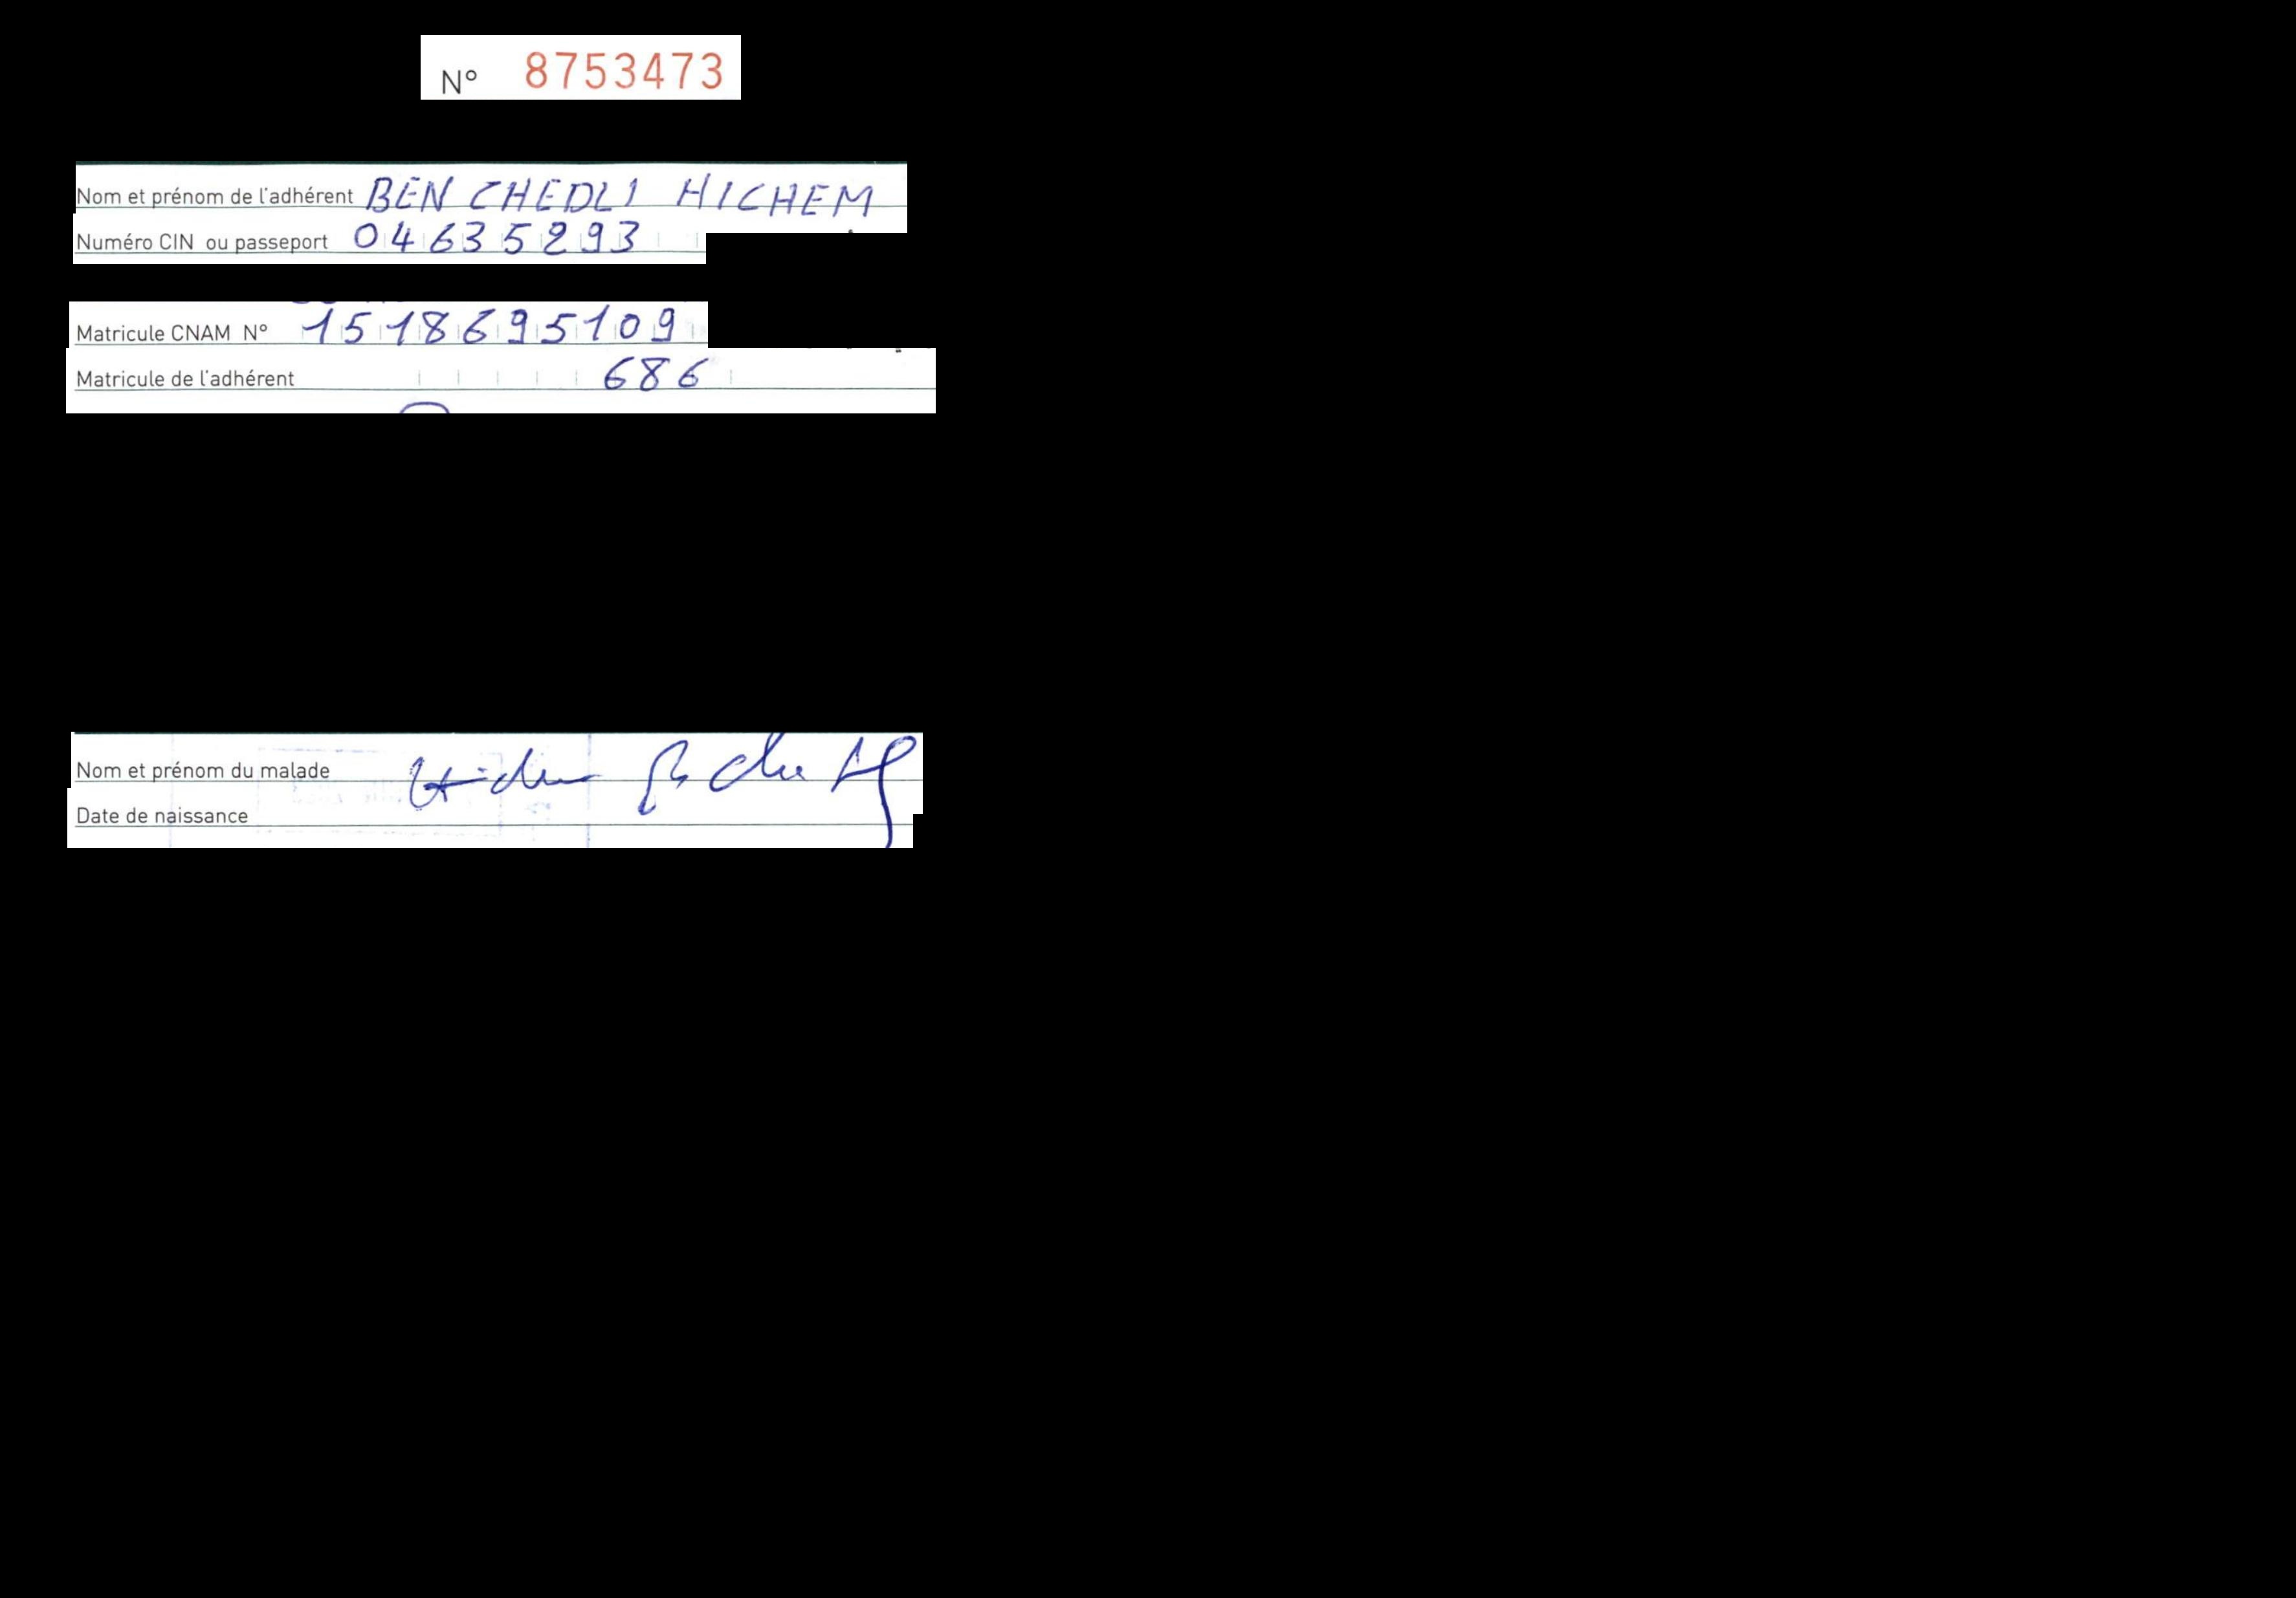 N° 8753473
Nom et prénom de l'adhérent BEN CHEDLI HICHEM
Numéro CIN ou passeport 04635293
Matricule CNAM N° 1518695109
Matricule de l'adhérent 686
Nom et prénom du malade
Date de naissance